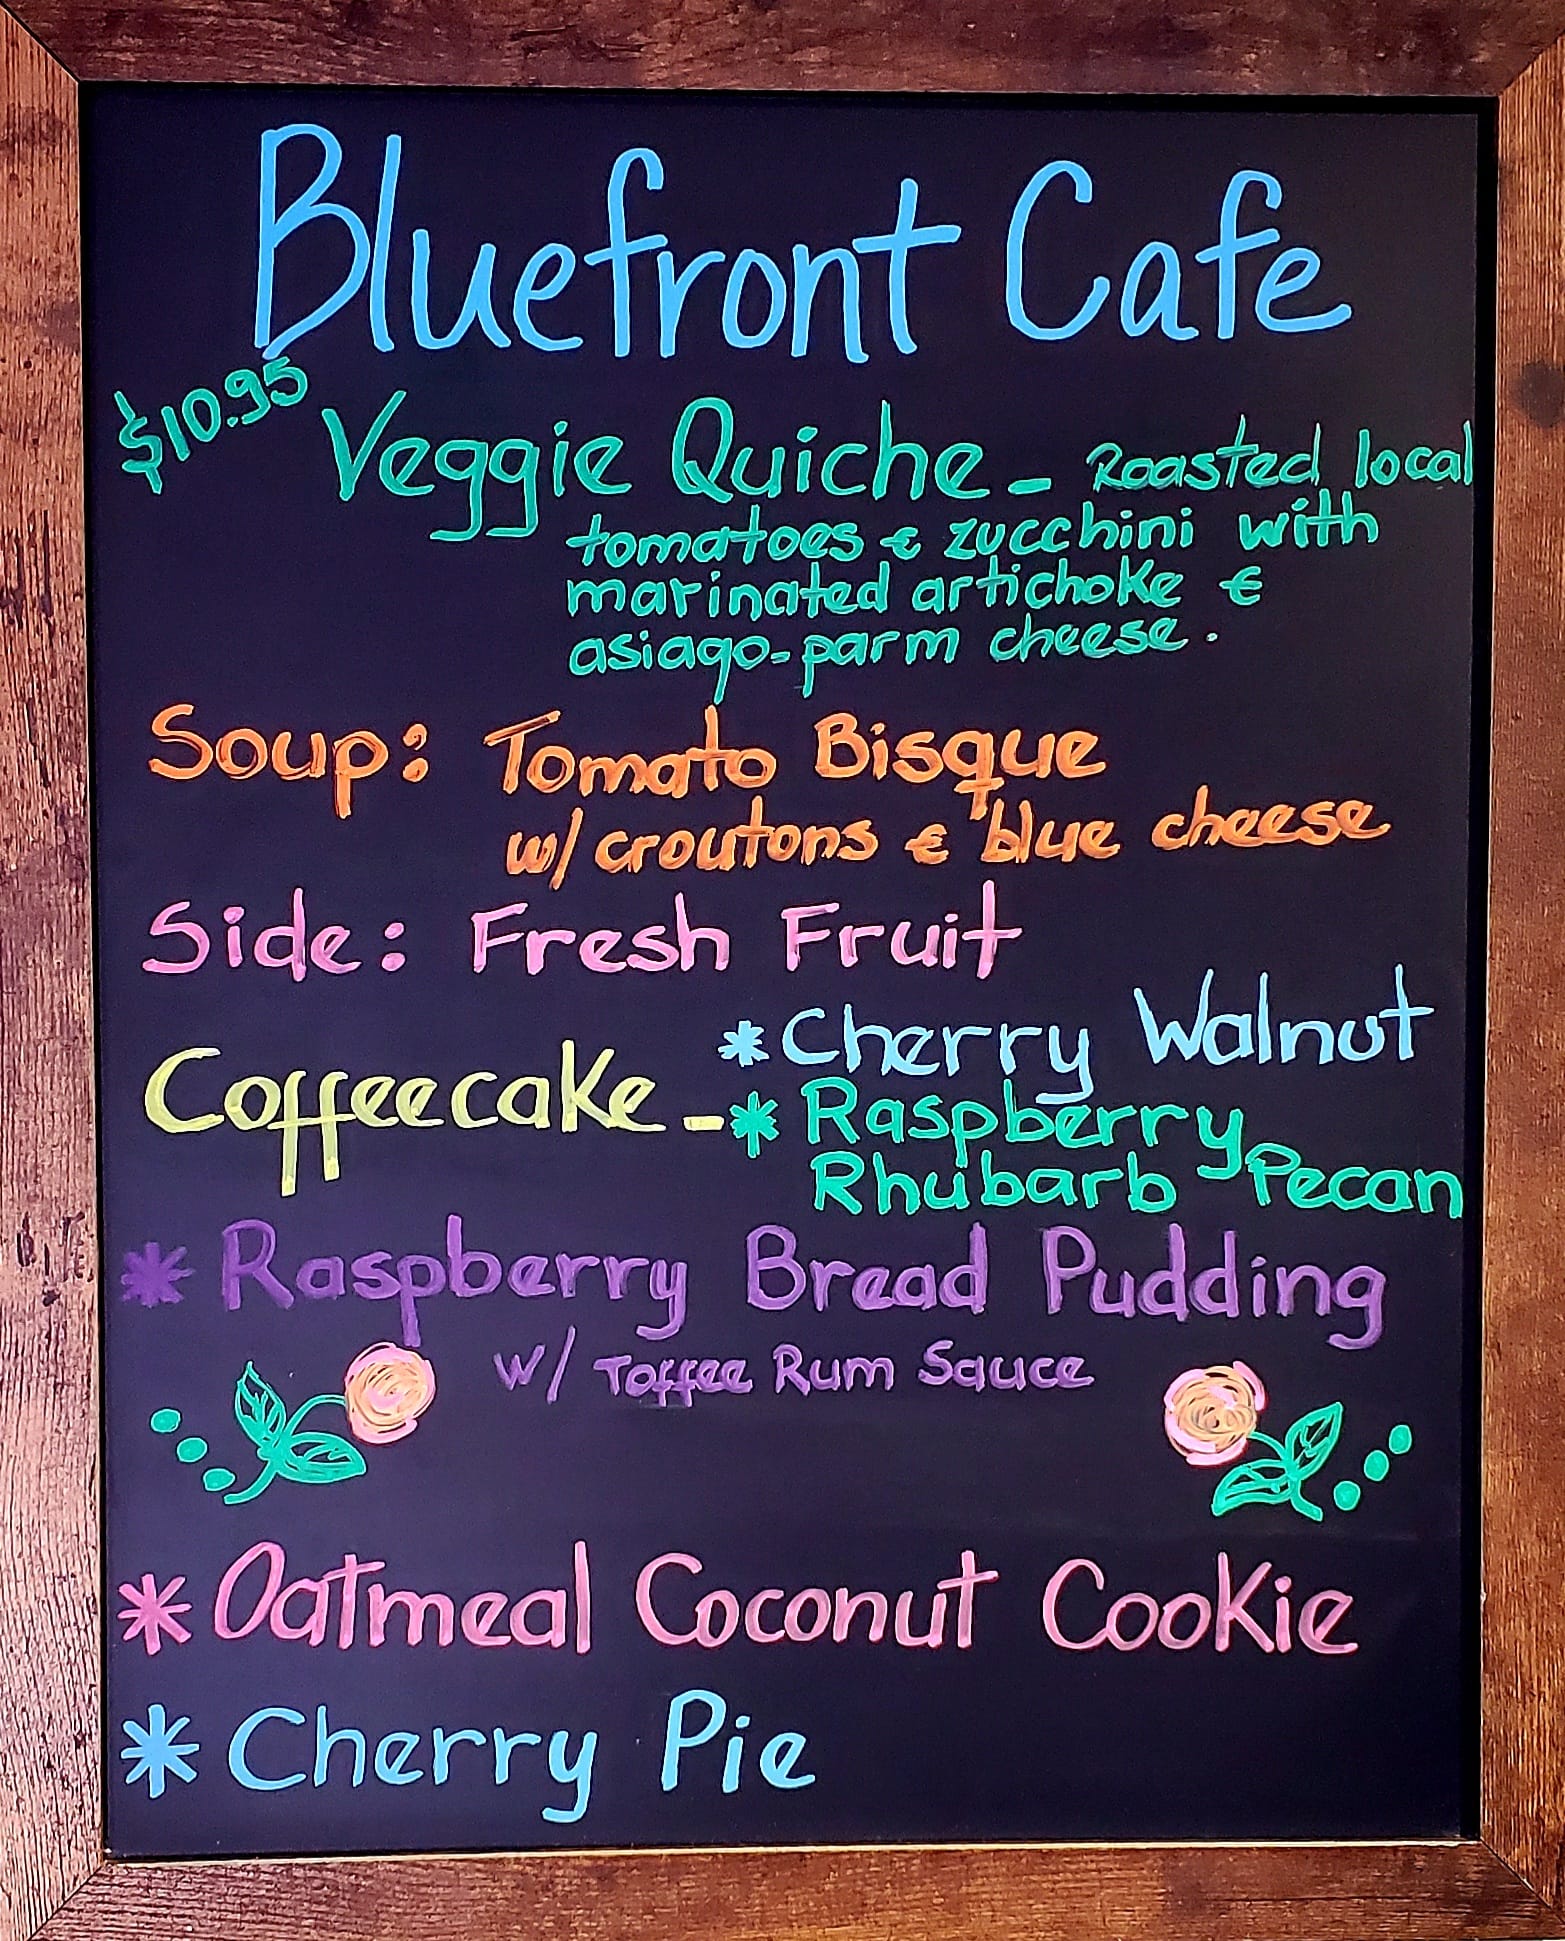 Bluefront Cafe
$10.95
Veggie Quiche - Roasted local
tomatoes & zucchini with
marinated artichoke &
asiago-parm cheese.
Soup: Tomato Bisque
w/ croutons & blue cheese
Side: Fresh Fruit
* Cherry Walnut
Coffeecake - * Raspberry
Rhubarb Pecan
* Raspberry Bread Pudding
w/ Toffee Rum Sauce
* Oatmeal Coconut Cookie
* Cherry Pie